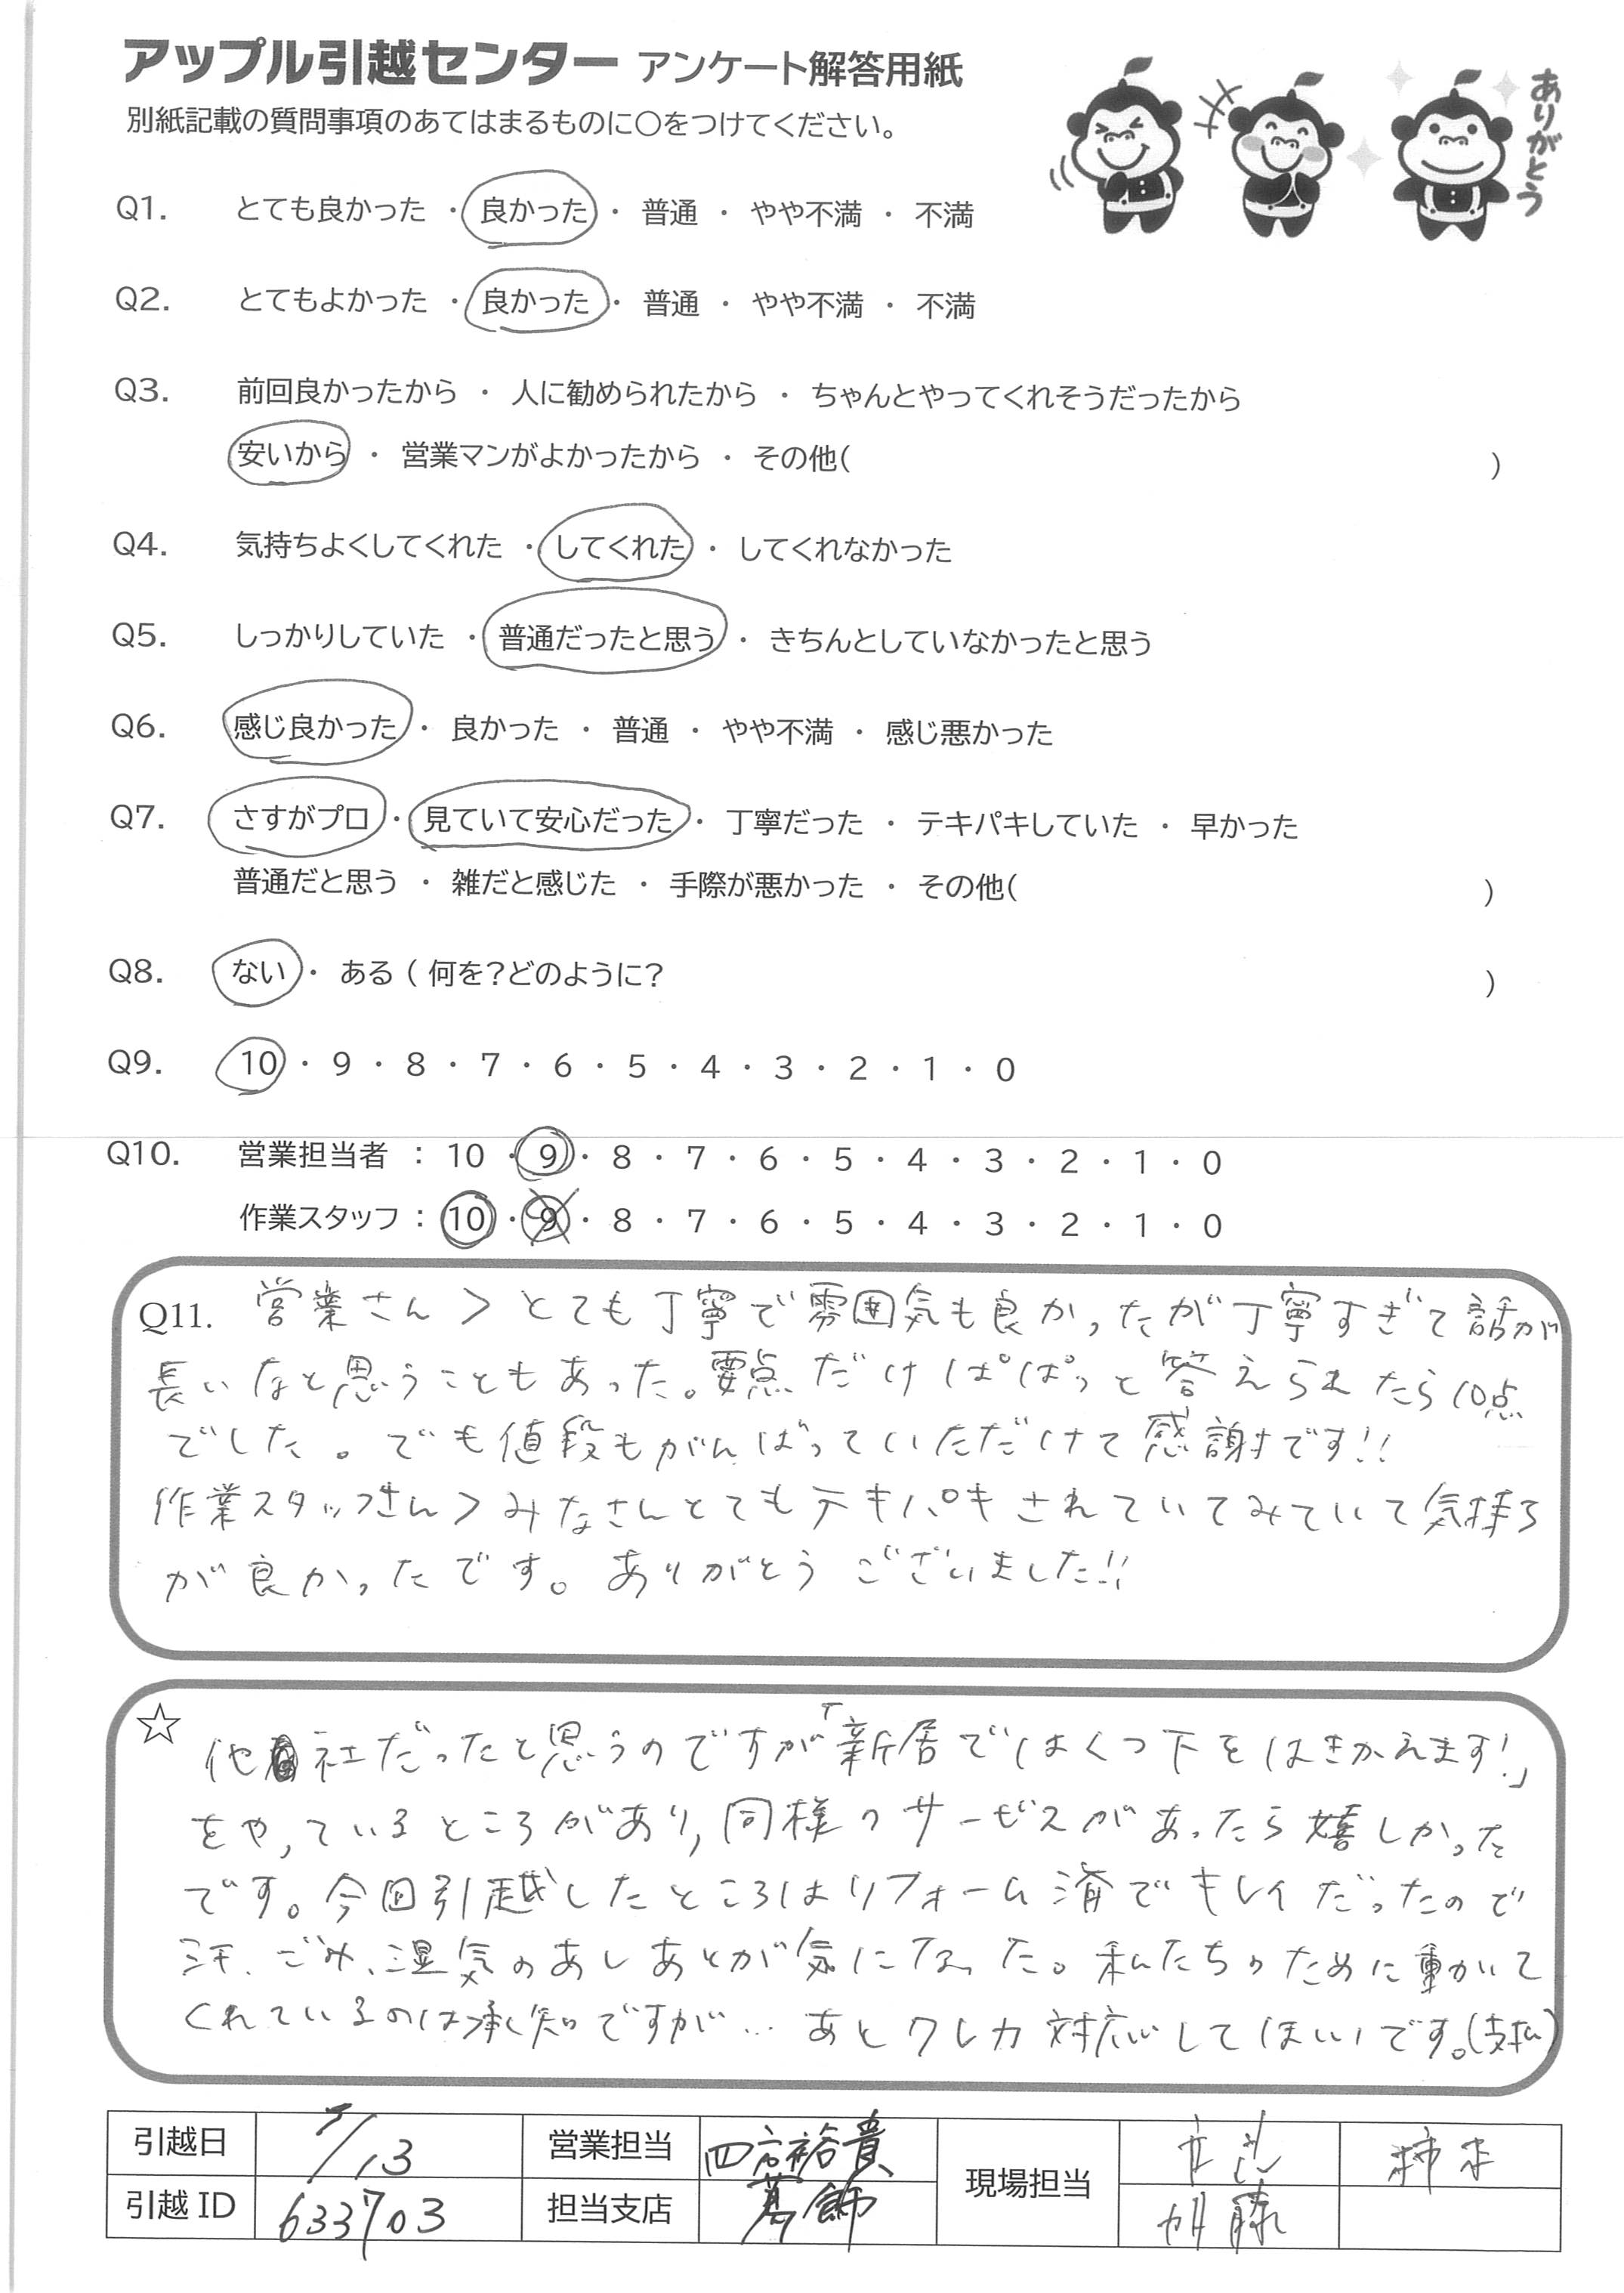 アップル引越センター アンケート解答用紙
別紙記載の質問事項のあてはまるものに○をつけてください。
ありがとう
Q1. とても良かった ・ 良かった ・ 普通 ・ やや不満 ・ 不満
Q2. とてもよかった ・ 良かった ・ 普通 ・ やや不満 ・ 不満
Q3. 前回良かったから ・ 人に勧められたから ・ ちゃんとやってくれそうだったから
安いから ・ 営業マンがよかったから ・ その他( )
Q4. 気持ちよくしてくれた ・ してくれた ・ してくれなかった
Q5. しっかりしていた ・ 普通だったと思う ・ きちんとしていなかったと思う
Q6. 感じ良かった ・ 良かった ・ 普通 ・ やや不満 ・ 感じ悪かった
Q7. さすがプロ ・ 見ていて安心だった ・ 丁寧だった ・ テキパキしていた ・ 早かった
普通だと思う ・ 雑だと感じた ・ 手際が悪かった ・ その他( )
Q8. ない ・ ある ( 何を?どのように? )
Q9. 10 ・ 9 ・ 8 ・ 7 ・ 6 ・ 5 ・ 4 ・ 3 ・ 2 ・ 1 ・ 0
Q10. 営業担当者 : 10 ・ 9 ・ 8 ・ 7 ・ 6 ・ 5 ・ 4 ・ 3 ・ 2 ・ 1 ・ 0
作業スタッフ : 10 ・ 9 ・ 8 ・ 7 ・ 6 ・ 5 ・ 4 ・ 3 ・ 2 ・ 1 ・ 0
Q11. 営業さん> とても丁寧で雰囲気も良かったが丁寧すぎて話が
長いなと思うこともあった。要点だけぱぱっと答えられたら10点
でした。でも値段もがんばっていただけて感謝です!!
作業スタッフさん> みなさんとてもテキパキされていてみていて気持ち
が良かったです。ありがとうございました!!
☆ 他社だったと思うのですが「新居ではくつ下をはきかえます!」
をやっているところがあり、同様のサービスがあったら嬉しかった
です。今回引越したところはリフォーム済でキレイだったので
汗、ごみ、湿気のあしあとが気になった。私たちのために動いて
くれているのは承知ですが… あとクレカ対応してほしいです。(支払)
引越日 7/13 営業担当 裕貴 現場担当 柿本
引越 ID 633703 担当支店 葛飾 加藤